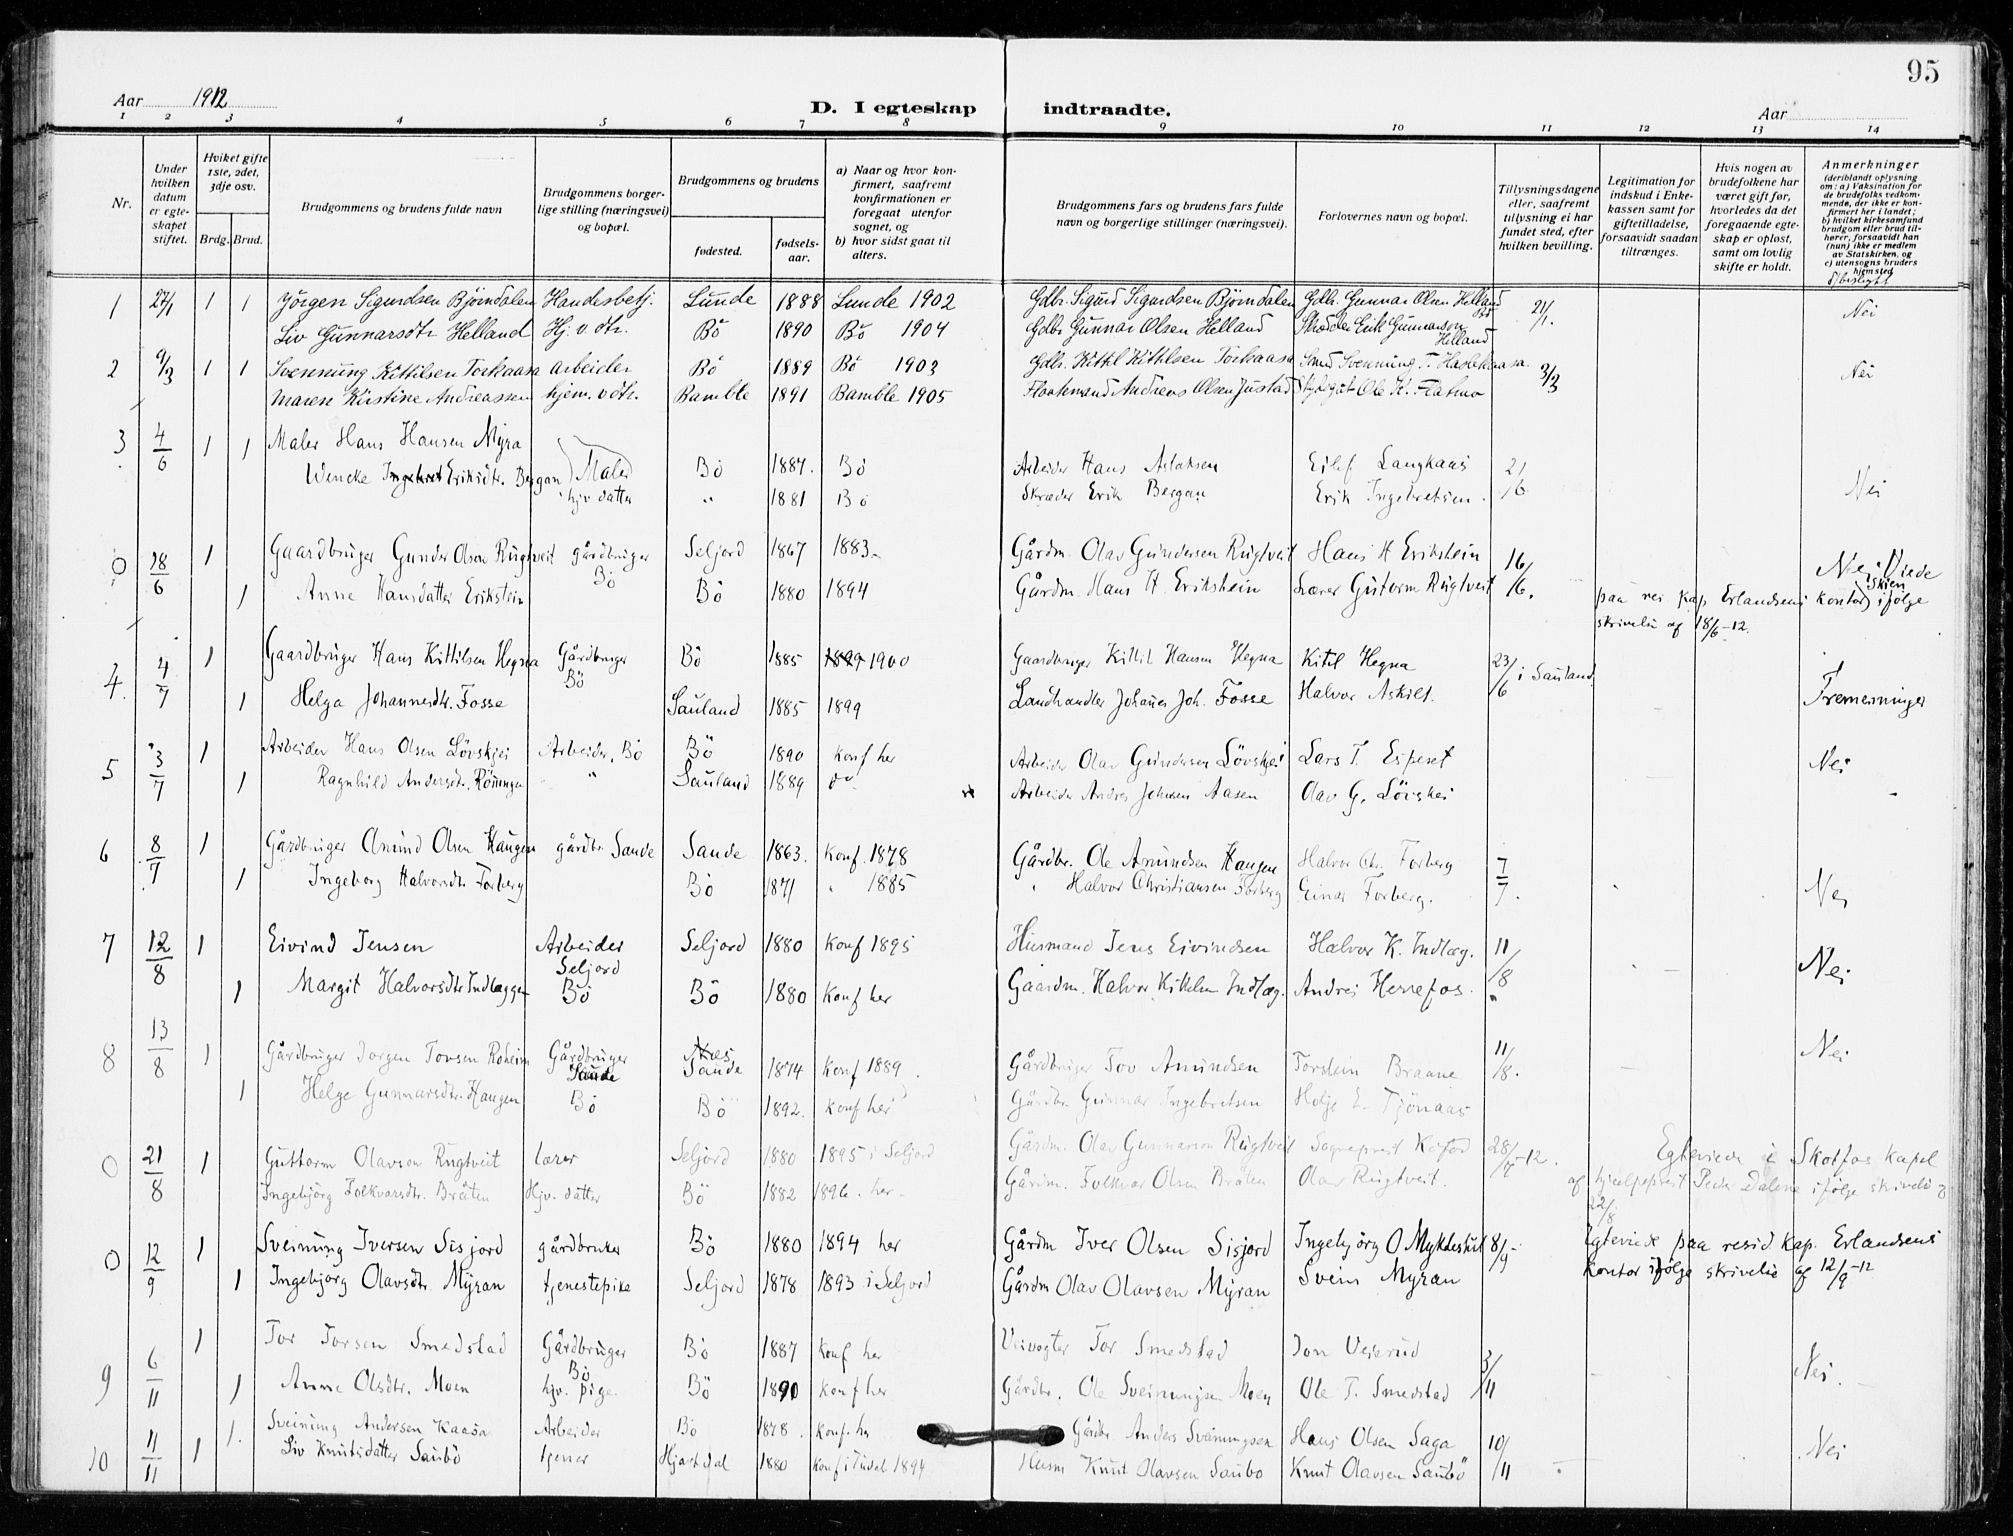 95
Aar 1912
D. I egteskap indtraadte.
Aar
1 2 3 4 5 6 7 8 9 10 11 12 13 14
Nr.
Under hvilken datum er egteskapet stiftet.
Hviket gifte 1ste, 2det, 3dje osv.
Brdg. Brud.
Brudgommens og brudens fulde navn
Brudgommens borgerlige stilling (næringsvei) og bopæl.
Brudgommens og brudens
fødested.
fødselsaar.
a) Naar og hvor konfirmert, saafremt konfirmationen er foregaat utenfor sognet, og
b) hvor sidst gaat til alters.
Brudgommens fars og brudens fars fulde navn og borgerlige stillinger (næringsvei).
Forlovernes navn og bopæl.
Tillysningsdagene eller, saafremt tillysning ei har fundet sted, efter hvilken bevilling.
Legitimation for indskud i Enkekassen samt for giftetilladelse, forsaavidt saadan tiltrænges.
Hvis nogen av brudefolkene har været gift før, hvorledes da det foregaaende egteskap er opløst, samt om lovlig skifte er holdt.
Anmerkninger (deriblandt oplysning om: a) Vaksination for de brudefolks vedkommende, der ikke er konfirmert her i landet; b) hvilket kirkesamfund brudgom eller brud tilhører, forsaavidt han (hun) ikke er medlem av Statskirken, og c) utensogns bruders hjemsted
d) beslegtet
1 27/1 1 1 Jörgen Sigurdsen Björndalen Handesbetj. Lunde 1888 Lunde 1902 Gdbr. Sigurd Sigurdsen Björndalen Gdbr. Gunnar Olsen Helland Bö 21/1. Nei
Liv Gunnarsdtr Helland Hj. v. dtr. Bö 1890 Bö 1904 Gdbr Gunnar Olsen Helland Skræder Erik Gunnarson Helland
2 9/3 1 1 Svennung Kittilsen Torkaasa arbeider Bö 1889 Bö 1903 Gdbr. Kittil Kittilsen Torkaasa Smed Svennung T. Haslekaasa. 3/3 Nei
Maren Kirstine Andreassen hjem. v dtr. Bamble 1891 Bamble 1905 Andreas Olsen Justad Ole K. Flatmo
3 4/6 1 1 Maler Hans Hansen Myra Maler Bö 1887. Bö Arbeider Hans Aslaksen Eilef Langkaas 2/6 Nei
Wencke Eriksdtr. Bergan hjv datter " 1881 Bö Skræder Erik Bergan Erik Ingebretsen.
0 18/6 1 Gaardbruger Gunder Olsen Rugtveit gårdbruger Bö Seljord 1867 1883 Gårdm. Olav Gundersen Rugtveit Hans H Erikstein 16/6. Nei. Viede
1 Anne Hansdatter Erikstein Bö 1880 1894 Gårdm. Hans H. Erikstein Lærer Gutorm Rugtveit paa res kap Erlandsens kontor i Skien ifölge
skrivelse af 18/6-12.
4 4/7 1 Gaardbruger Hans Kittilsen Hegna Gårdbruger Bö Bö 1885 1899 1900 Gaardbruger Kittil Hansen Hegna Kitil Hegna 23/6 i Sauland
1 Helga Johannesdtr. Fosse Sauland 1885 1899 Landhandler Johanes Joh. Fosse Halvor Askilt. Tremenninger
5 3/7 1 Arbeider Hans Olsen Lövskjei Arbeider, Bö Bö 1890 Konf her Arbeider Olav Gundersen Lövskjei Lars T. Espeset Nei
1 Ragnhild Andersdtr. Rönningen " Sauland 1889 do Arbeider Andres Johnsen Aasen Olav G. Lövskei
6 8/7 1 Gårdbruger Amund Olsen Haugen gårdbr. Sande Sande 1863. Konf. 1878 Gårdbr. Ole Amundsen Haugen Halvor Chr. Forberg 7/7.
1 Ingeborg Halvorsdtr Forberg Bö 1871 " 1885 " Halvor Christiansen Forberg Einar Forberg. Nei
7 12/8 1 Eivind Jensen Arbeider Seljord Seljord 1880 Konf 1895 Husmand Jens Eivindsen Halvor K. Indlæg. 11/8 Nei
1 Margit Halvorsdtr Indlæggen Bö Bö 1880 Konf her Gaardm. Halvor Kittilsen Indlæg. Andres Herrefos.
8 13/8 1 Gårdbruger Jørgen Tovsen Roheim Gårdbruger Sande Sande 1874 Konf 1889. Gårdbruger Tov Amundsen Torstein Braane 11/8. Nei
1 Helge Gunnarsdtr. Haugen Bö Bö 1892. Konf her Gårdbr. Gunnar Ingebretsen Holje E. Tjönaas
0 21/8 1 Guttorm Olavson Rugtveit lærer Seljord 1880 1895 i Seljord Gårdm. Olav Gunnarson Rugtveit Sogneprest Kofod 28/7-12. Egteviede i Skotfos kapel
Ingebjörg Folkvarsdtr. Bråten Hjv. datter Bö 1882 1896. her. Gårdm. Folkvar Olsen Bråten Olav Rugtveit. af hjælpeprest Peder Dalene ifölge skrivelse af
22/8
0 12/9 1 Sveinung Iversen Sisjord gårdbruker Bö 1880 1894 her Gårdm Iver Olsen Sisjord Ingebjörg O Myklestul 8/9- Egteviede paa resid Kap. Erlandsens
1 Ingebjörg Olavsdtr. Myran tjenestepike Seljord 1878 1893 i Seljord Gårdm Olav Olavsen Myran Svein Myran Kontor ifölge skrivelse af 12/9-12
9 6/11 1 Tor Torsen Smedstad Gårdbruger Bö Bö 1887 Konf her Veivogter Tor Smedstad Jon Veierud 3/11 Nei.
1 Anne Olsdtr. Moen hjv. pige. Bö 1890 Konf her Gårdbr. Ole Sveinungsen Moen Ole T. Smedstad
10 11/11 1. Sveinung Andersen Kaasa Arbeider Bö 1878. Konf. her Gårdbr Anders Sveinungsen Hans Olsen Saga 10/11 Nei
1 Liv Knutsdatter Saubö tjener Hjartdal 1880 Konf i Tudal 1894 Husm Knut Olavsen Saubö Knut Olavsen Saubö